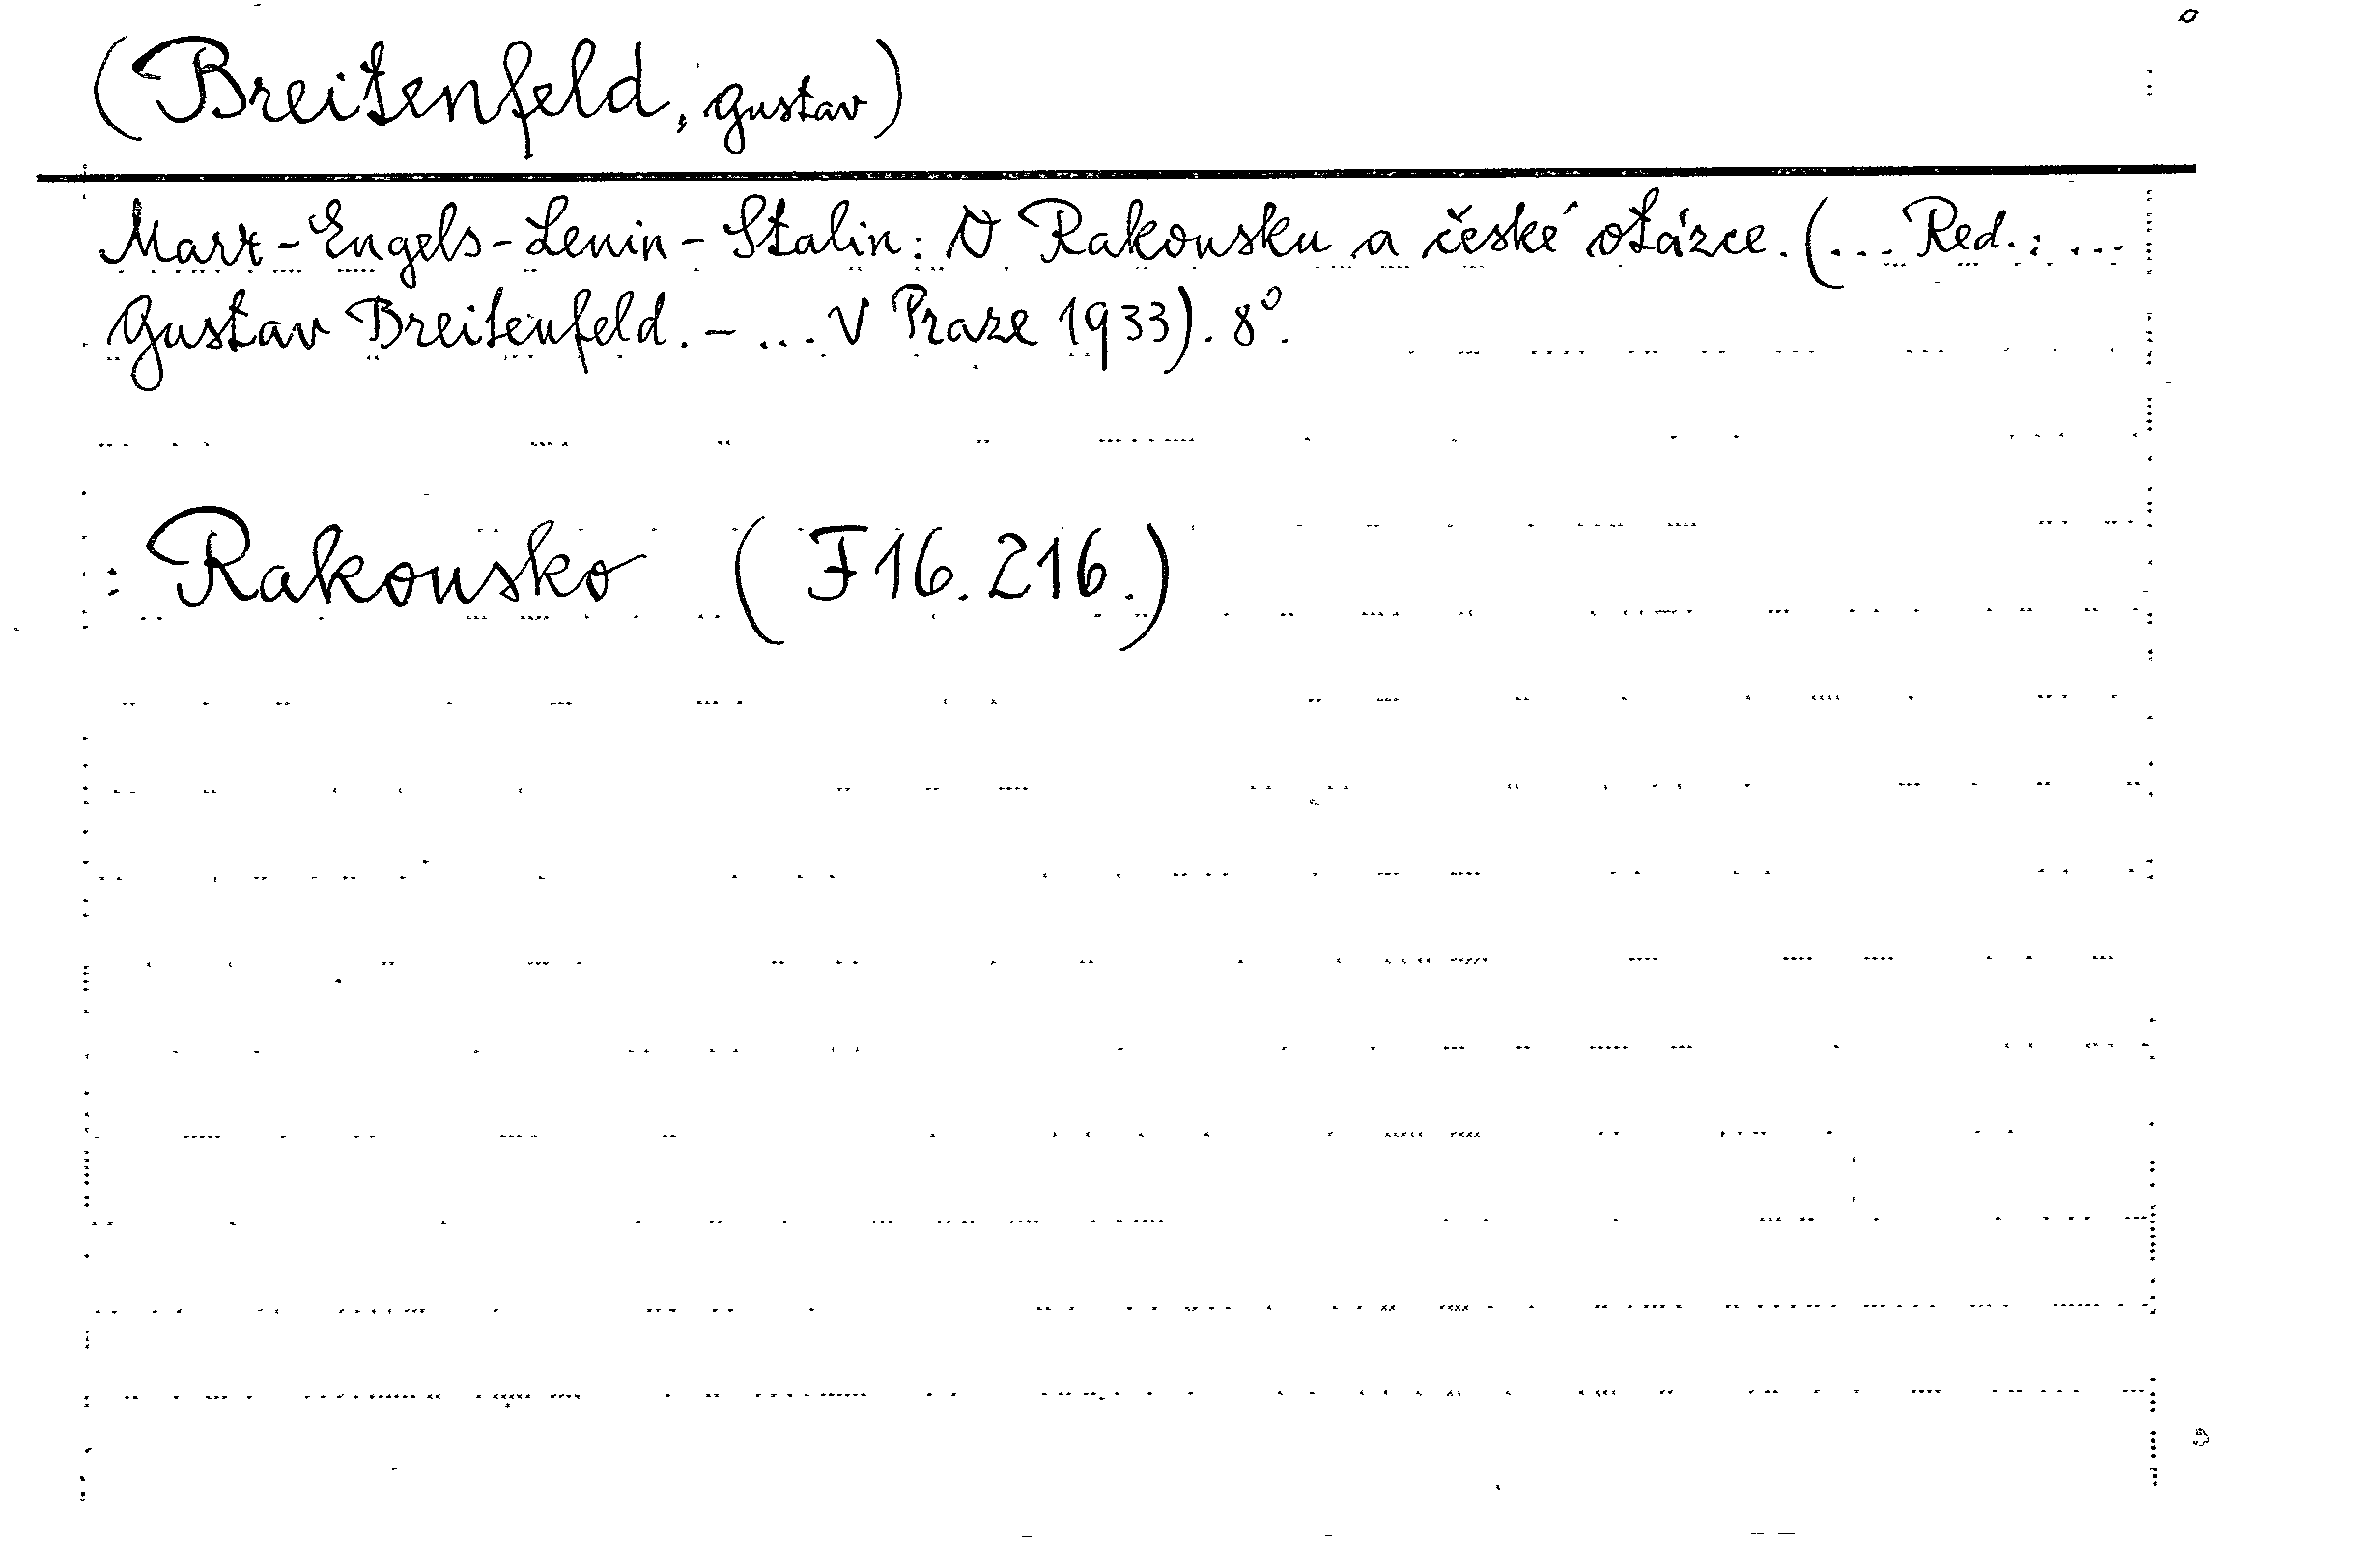 (Breitenfeld, Gustav)
Marx-Engels-Lenin-Stalin: O Rakousku a české otázce. (... Red.: ...
Gustav Breitenfeld. - ... V Praze 1933). 8°.
: Rakousko (F 16. 216.)